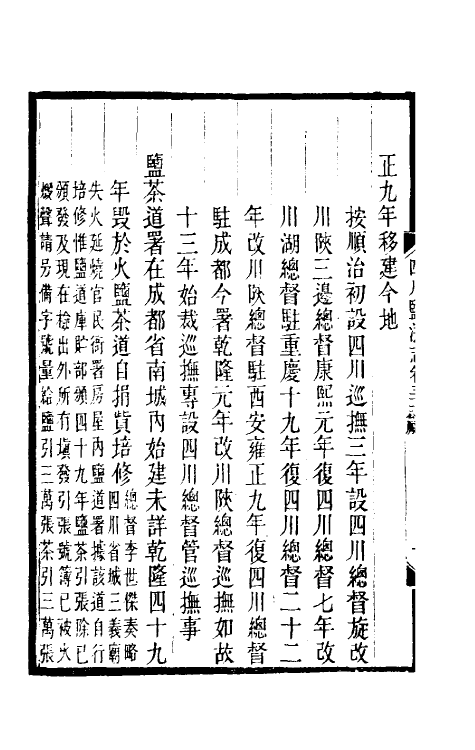 正九年移建今地
按順治初設四川巡撫三年設四川總督旋改
川陝三邊總督康熙元年復四川總督七年改
川湖總督駐重慶十九年復四川總督二十二
年改川陝總督駐西安雍正九年復四川總督
駐成都今署乾隆元年改川陝總督巡撫如故
十三年始裁巡撫專設四川總督管巡撫事
鹽茶道署在成都省南城內始建未詳乾隆四十九
年毀於火鹽茶道自捐貲培修總督李世傑奏略四川省城三義廟
失火延燒官民衙署房屋內鹽道署據該道自行
培修惟鹽道庫貯部頒四十九年鹽茶引張除已
頒發及現在檢出外所有塡發引張號簿已被火
燬聲請另備字號量給鹽引三萬張茶引三萬張
四川鹽法志卷三